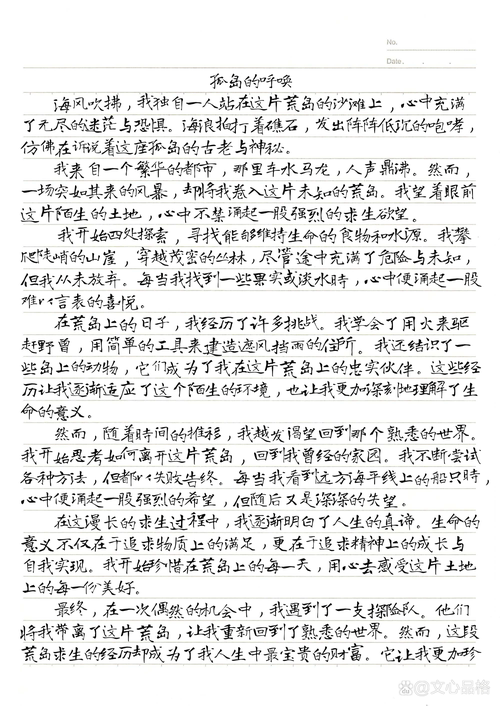 No.
Date. . .
孤岛的呼唤
海风吹拂，我独自一人站在这片荒岛的沙滩上，心中充满
了无尽的迷茫与恐惧。海浪拍打着礁石，发出阵阵低沉的咆哮，
仿佛在诉说着这座孤岛的古老与神秘。
我来自一个繁华的都市，那里车水马龙，人声鼎沸。然而，
一场突如其来的风暴，却将我卷入这片未知的荒岛。我望着眼前
这片陌生的土地，心中不禁涌起一股强烈的求生欲望。
我开始四处探索，寻找能够维持生命的食物和水源。我攀
爬陡峭的山崖，穿越茂密的丛林，尽管途中充满了危险与未知，
但我从未放弃。每当我找到一些果实或淡水时，心中便涌起一股
难以言表的喜悦。
在荒岛上的日子，我经历了许多挑战。我学会了用火来驱
赶野兽，用简单的工具来建造遮风挡雨的住所。我还结识了一
些岛上的动物，它们成为了我在这片荒岛上的忠实伙伴。这些经
历让我逐渐适应了这个陌生的环境，也让我更加深刻地理解了生
命的意义。
然而，随着时间的推移，我越发渴望回到那个熟悉的世界。
我开始思考如何离开这片荒岛，回到我曾经的家园。我不断尝试
各种方法，但都以失败告终。每当我看到远方海平线上的船只时，
心中便涌起一股强烈的希望，但随后又是深深的失望。
在这漫长的求生过程中，我逐渐明白了人生的真谛。生命的
意义不仅在于追求物质上的满足，更在于追求精神上的成长与
自我实现。我开始珍惜在荒岛上的每一天，用心去感受这片土地
上的每一份美好。
最终，在一次偶然的机会中，我遇到了一支探险队。他们
将我带离了这片荒岛，让我重新回到了熟悉的世界。然而，这段
荒岛求生的经历却成为了我人生中最宝贵的财富。它让我更加珍
@文心品格